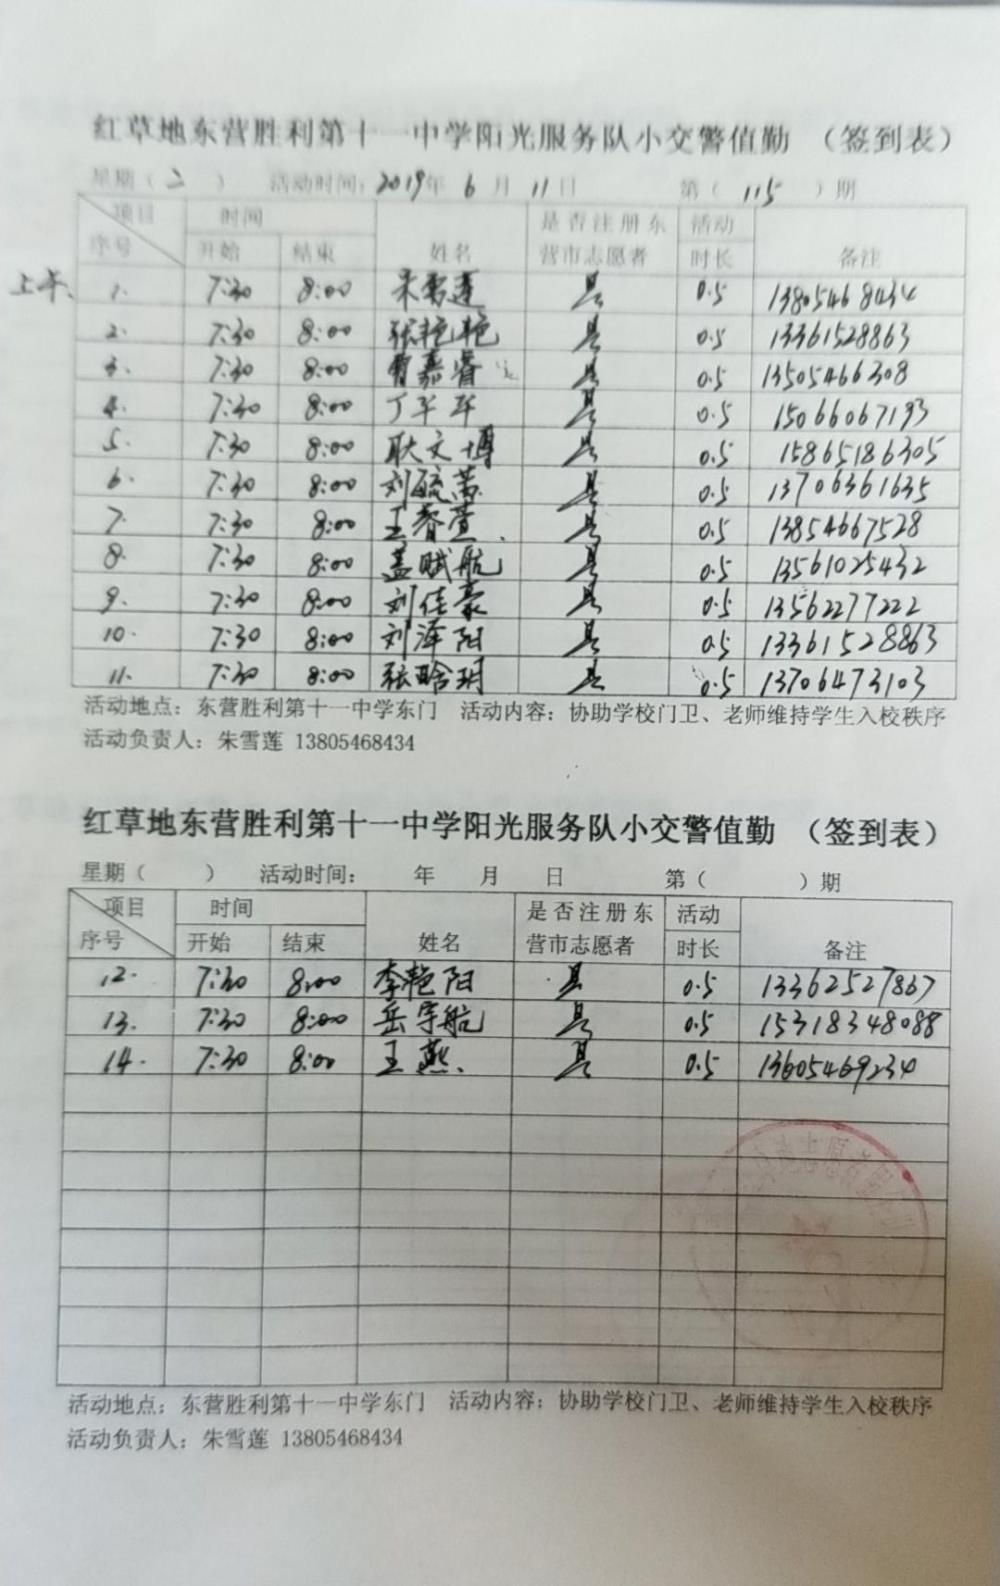 红草地东营胜利第十一中学阳光服务队小交警值勤 （签到表）
星期（二 ） 活动时间：2019年 6 月 11日 第（ 115 ）期
项目 时间 是否注册东 活动
序号 开始 结束 姓名 营市志愿者 时长 备注
上午、 1. 7:30 8:00 朱雪莲 是 0.5 13805468434
2. 7:30 8:00 张艳艳 是 0.5 13361528863
3. 7:30 8:00 曹嘉睿 是 0.5 13505466308
4. 7:30 8:00 丁华华 是 0.5 15066067193
5. 7:30 8:00 耿文博 是 0.5 15865186305
6. 7:30 8:00 刘毓 是 0.5 13706361635
7. 7:30 8:00 王睿萱. 是 0.5 13854667528
8. 7:30 8:00 盖赋航 是 0.5 13561025432
9. 7:30 8:00 刘佳豪 是 0.5 13562277222
10. 7:30 8:00 刘泽阳 是 0.5 13361528863
11. 7:30 8:00 张晗玥 是 0.5 13706473103
活动地点：东营胜利第十一中学东门 活动内容：协助学校门卫、老师维持学生入校秩序
活动负责人：朱雪莲 13805468434
红草地东营胜利第十一中学阳光服务队小交警值勤 （签到表）
星期（ ） 活动时间： 年 月 日 第（ ）期
项目 时间 是否注册东 活动
序号 开始 结束 姓名 营市志愿者 时长 备注
12. 7:30 8:00 李艳阳 是 0.5 13362527867
13. 7:30 8:00 岳宇航 是 0.5 15318348088
14. 7:30 8:00 王燕. 是 0.5 13605469234
活动地点：东营胜利第十一中学东门 活动内容：协助学校门卫、老师维持学生入校秩序
活动负责人：朱雪莲 13805468434